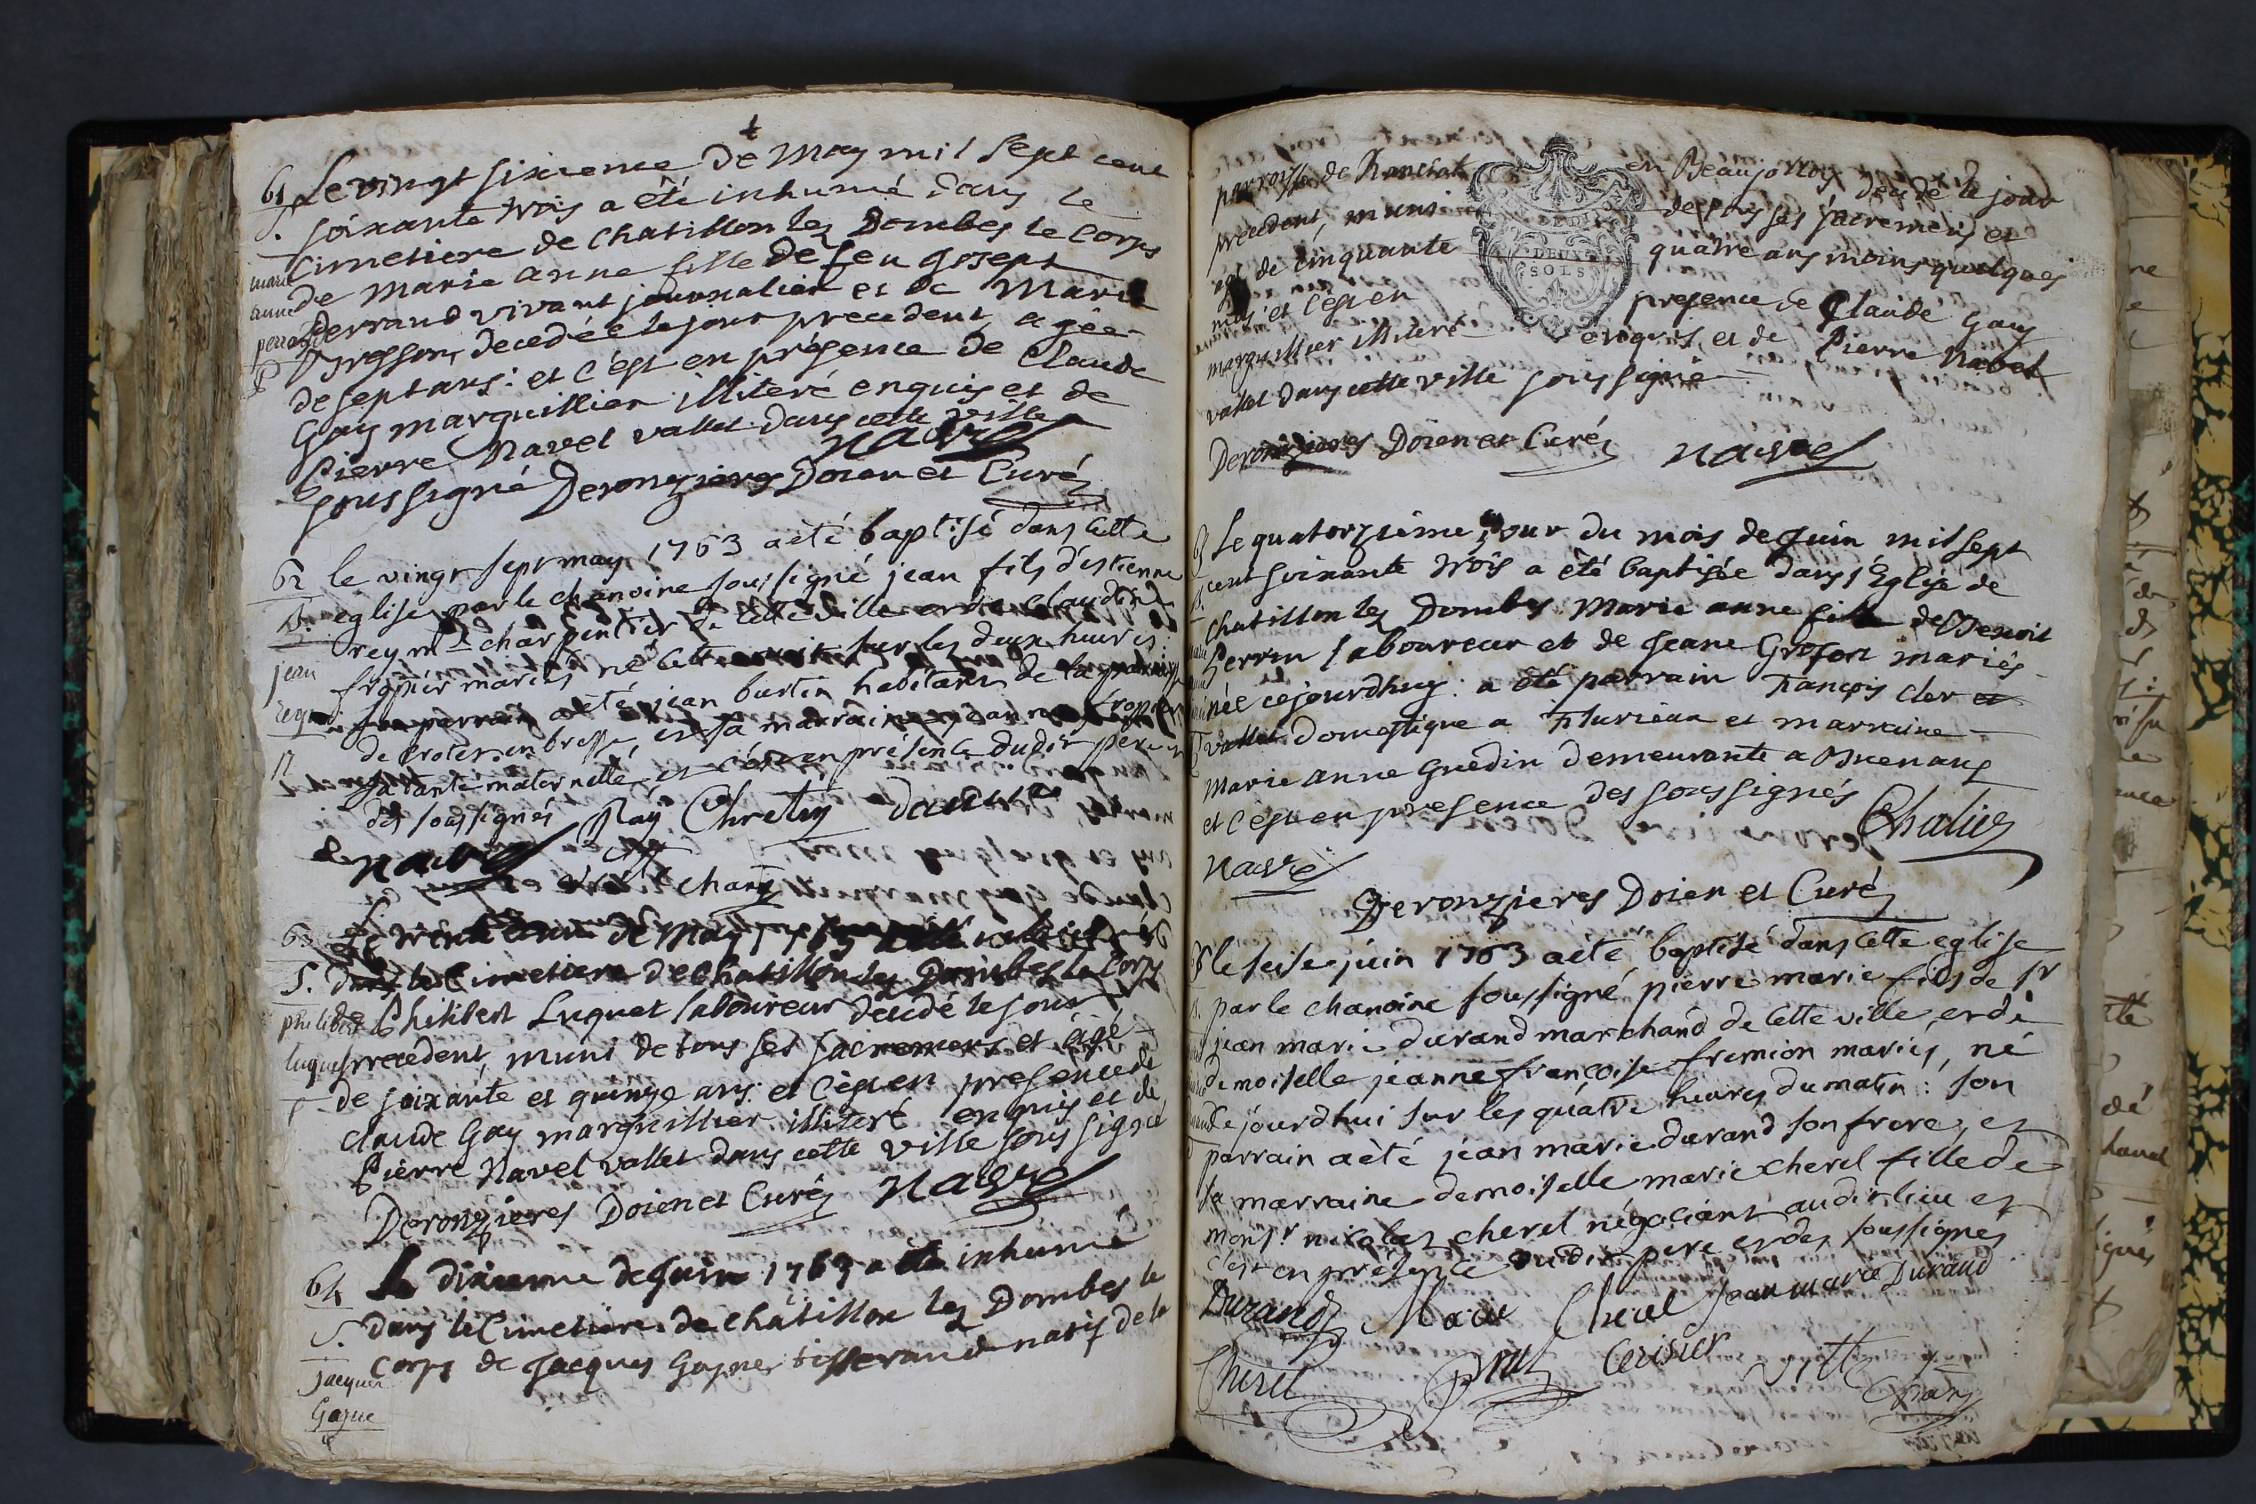 61 Le vingt sixieme de May mil sept cent
S. soixante trois a été inhumé dans le
Cimetiere de Chatillon lez Dombes le Corps
marie de Marie anne fille de feu Joseph
anne Perraud vivant journalier et de Marie
perraud Bresson, decedée le jour precedent, agée
de sept ans: et c'est en présence de Claude
Gay marguillier illiteré enquis et de
Pierre Navel vallet dans cette ville
soussigné Deronzieres Doien et Curé
navel
62 le vingt sept may 1763 a été baptisé dans cette
eglise par le chanoine soussigné jean fils d'estienne
B. rey me charpentier de cette ville et de claudine
jean fropier mariés né cette nuit sur les deux heures:
rey son parrain a été jean burtin habitant de la parroisse
de crotet en bresse, et sa marraine jeanne fropier
sa tante maternelle, et c'est en présence dudit pere et
des soussignés Ray Chretin
navel chan
63 Le trente de May 1763 a été inhumé
S. dans le Cimetiere de Chatillon lez Dombes le Corps
philibert de Philibert Luquet laboureur decedé le jour
luquet precedent, muni de tous ses sacremens et agé
de soixante et quinze ans: et c'est en presence de
Claude Gay marguillier illiteré enquis et de
Pierre Navel vallet dans cette ville soussigné
Deronzieres Doien et Curé navel
64 Le dixieme de Juin 1763 a été inhumé
S. dans le Cimetiere de Chatillon lez Dombes le
Corps de Jacques Gagne tisserand natif de la
jacques
Gagne
parroisse de en Beaujollois decedé le jour
precedent, muni de tous ses sacremens et
agé de cinquante quatre ans moins quelques
mois et c'est en presence de Claude Gay
marguillier illiteré enquis, et de Pierre Navel
vallet dans cette ville soussigné
DEUX
SOLS
Deronzieres Doien et Curé navel
Le quatorzieme jour du mois de Juin mil sept
cent soixante trois a été baptisée dans l'Eglise de
Chatillon lez Dombes Marie anne fille de Benoit
Perrin laboureur et de Jeane Grefon mariés
née cejourdhuy: a été parrain François Cler
vallet domestique a Flurieux et marraine
Marie anne Guedin demeurante a Buenans
et c'est en presence des soussignés Chalier
navel
Deronzieres Doien et Curé
le seise juin 1763 a été baptisé dans cette eglise
par le chanoine soussigné pierre marie fils de sr
jean marie durand marchand de cette ville, et de
demoiselle jeanne françoise fremion mariés, né
cejourd'hui sur les quatre heures du matin: son
parrain a été jean marie durand son frere, et
sa marraine demoiselle marie cherel fille de
monsr nicolas cherel négociant audit lieu et
c'est en présence dudit pere et des soussignés
Durand Marie Cherel Jean marie Durand
Cherel Cerisier
chan